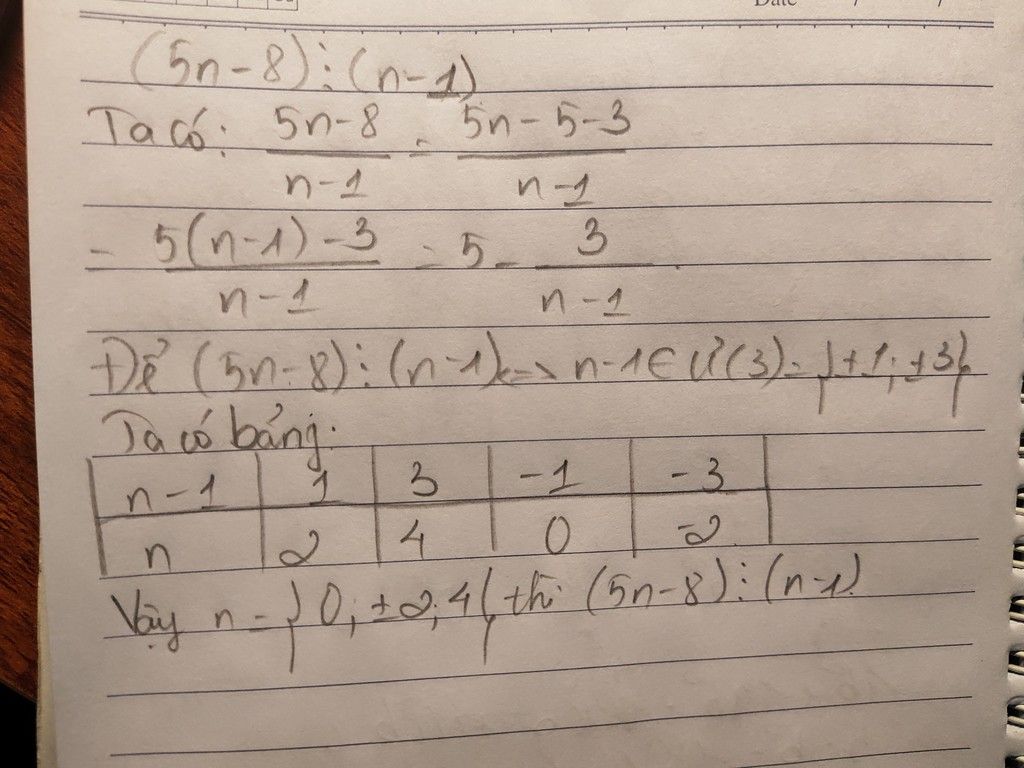 Date / /
(5n-8)⋮(n-1)
Ta có: \frac{5n-8}{n-1} = \frac{5n-5-3}{n-1}
= \frac{5(n-1)-3}{n-1} = 5 - \frac{3}{n-1}
Để (5n-8)⋮(n-1) <=> n-1 ∈ Ư(3) = {±1; ±3}
Ta có bảng:
n-1 1 3 -1 -3
n 2 4 0 -2
Vậy n = {0; ±2; 4} thì (5n-8)⋮(n-1).